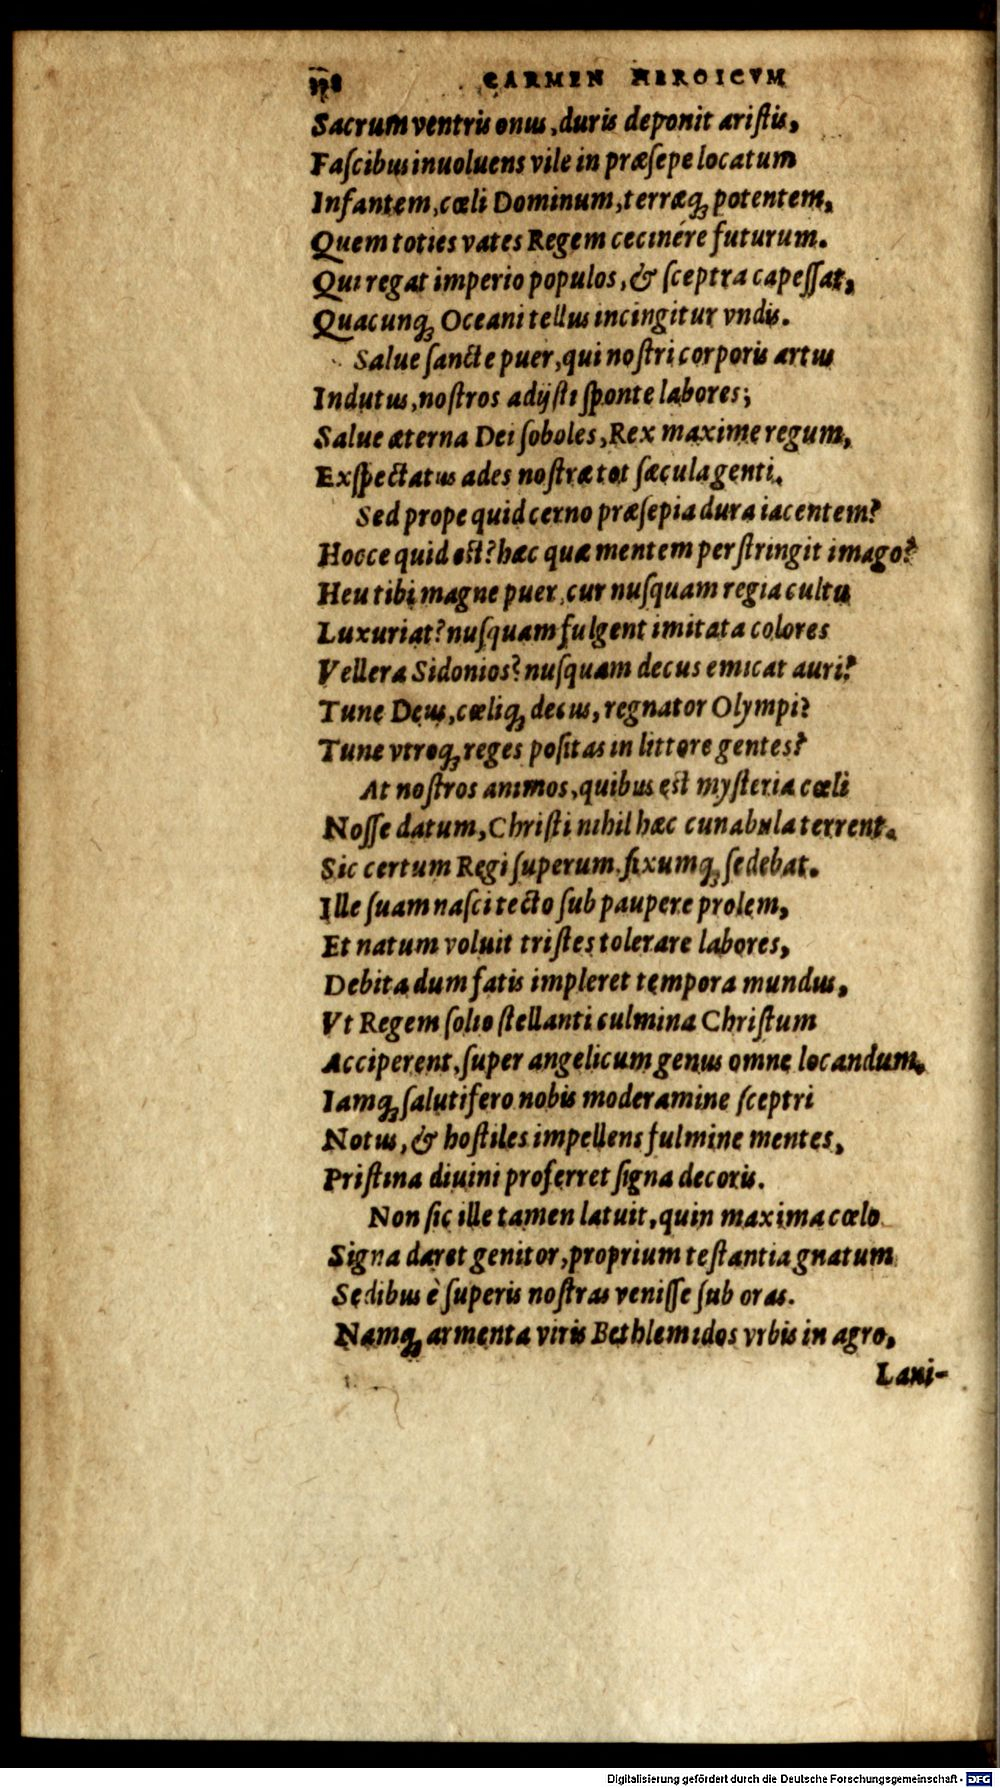 CARMEN HEROICVM
Sacrum ventris onus, duris deponit aristis,
Fascibus inuoluens vile in præsepe locatum
Infantem, cœli Dominum, terræq; potentem,
Quem toties vates Regem cecinére futurum.
Qui regat imperio populos, & sceptra capessat,
Quacunq; Oceani tellus incingitur vndis.
Salue sancte puer, qui nostri corporis artus
Indutus, nostros adijsti sponte labores;
Salue æterna Dei soboles, Rex maxime regum,
Exspectatus ades nostræ tot sæcula genti.
Sed prope quid cerno præsepia dura iacentem?
Hocce quid est? hæc quæ mentem perstringit imago?
Heu tibi magne puer, cur nusquam regia cultu
Luxuriat? nusquam fulgent imitata colores
Vellera Sidonios? nusquam decus emicat auri?
Tune Deus, cœliq; decus, regnator Olympi?
Tune vtroq; reges positas in littore gentes?
At nostros animos, quibus est mysteria cœli
Nosse datum, Christi nihil hæc cunabula terrent.
Sic certum Regi superum, fixumq; sedebat.
Ille suam nasci tecto sub paupere prolem,
Et natum voluit tristes tolerare labores,
Debita dum fatis impleret tempora mundus,
Vt Regem solio stellanti culmina Christum
Acciperent, super angelicum genus omne locandum.
Iamq; salutifero nobis moderamine sceptri
Notus, & hostiles impellens fulmine mentes,
Pristina diuini proferret signa decoris.
Non sic ille tamen latuit, quin maxima cœlo
Signa daret genitor, proprium testantia gnatum
Sedibus è superis nostras venisse sub oras.
Namq; armenta viris Bethlemidos vrbis in agro,
Lani-
Digitalisierung gefördert durch die Deutsche Forschungsgemeinschaft - DFG